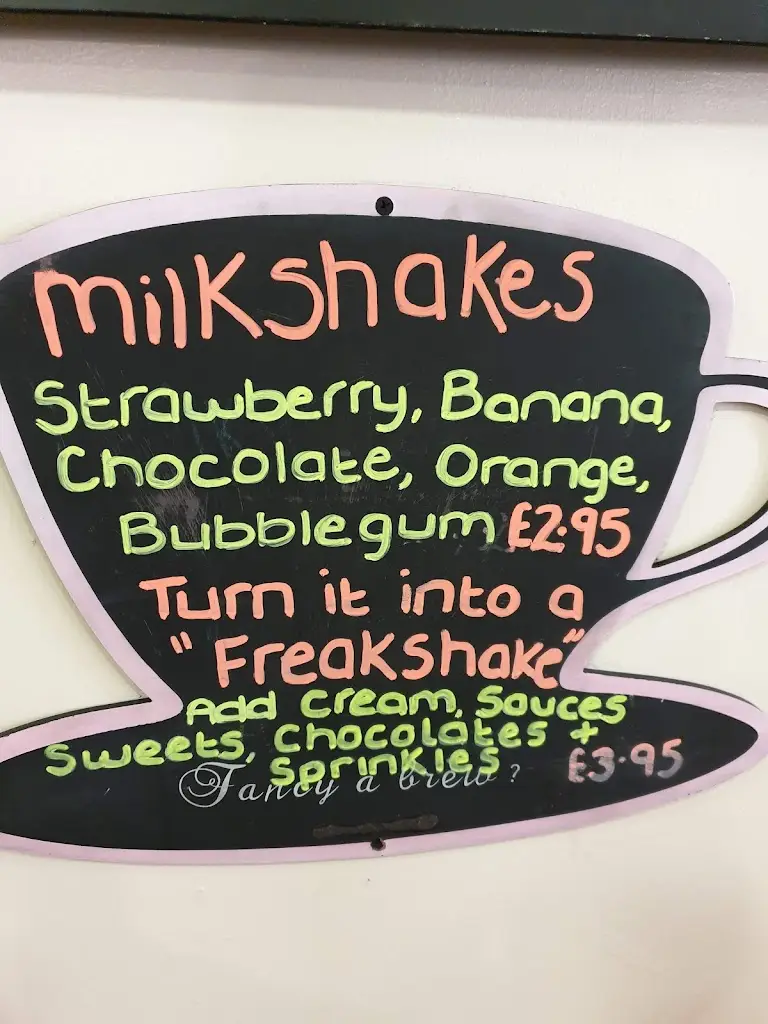 Milkshakes
Strawberry, Banana,
Chocolate, Orange,
Bubblegum £2.95
Turn it into a
"Freakshake"
Add Cream, Sauces
Sweets, Chocolates +
Sprinkles £3.95
Fancy a brew?